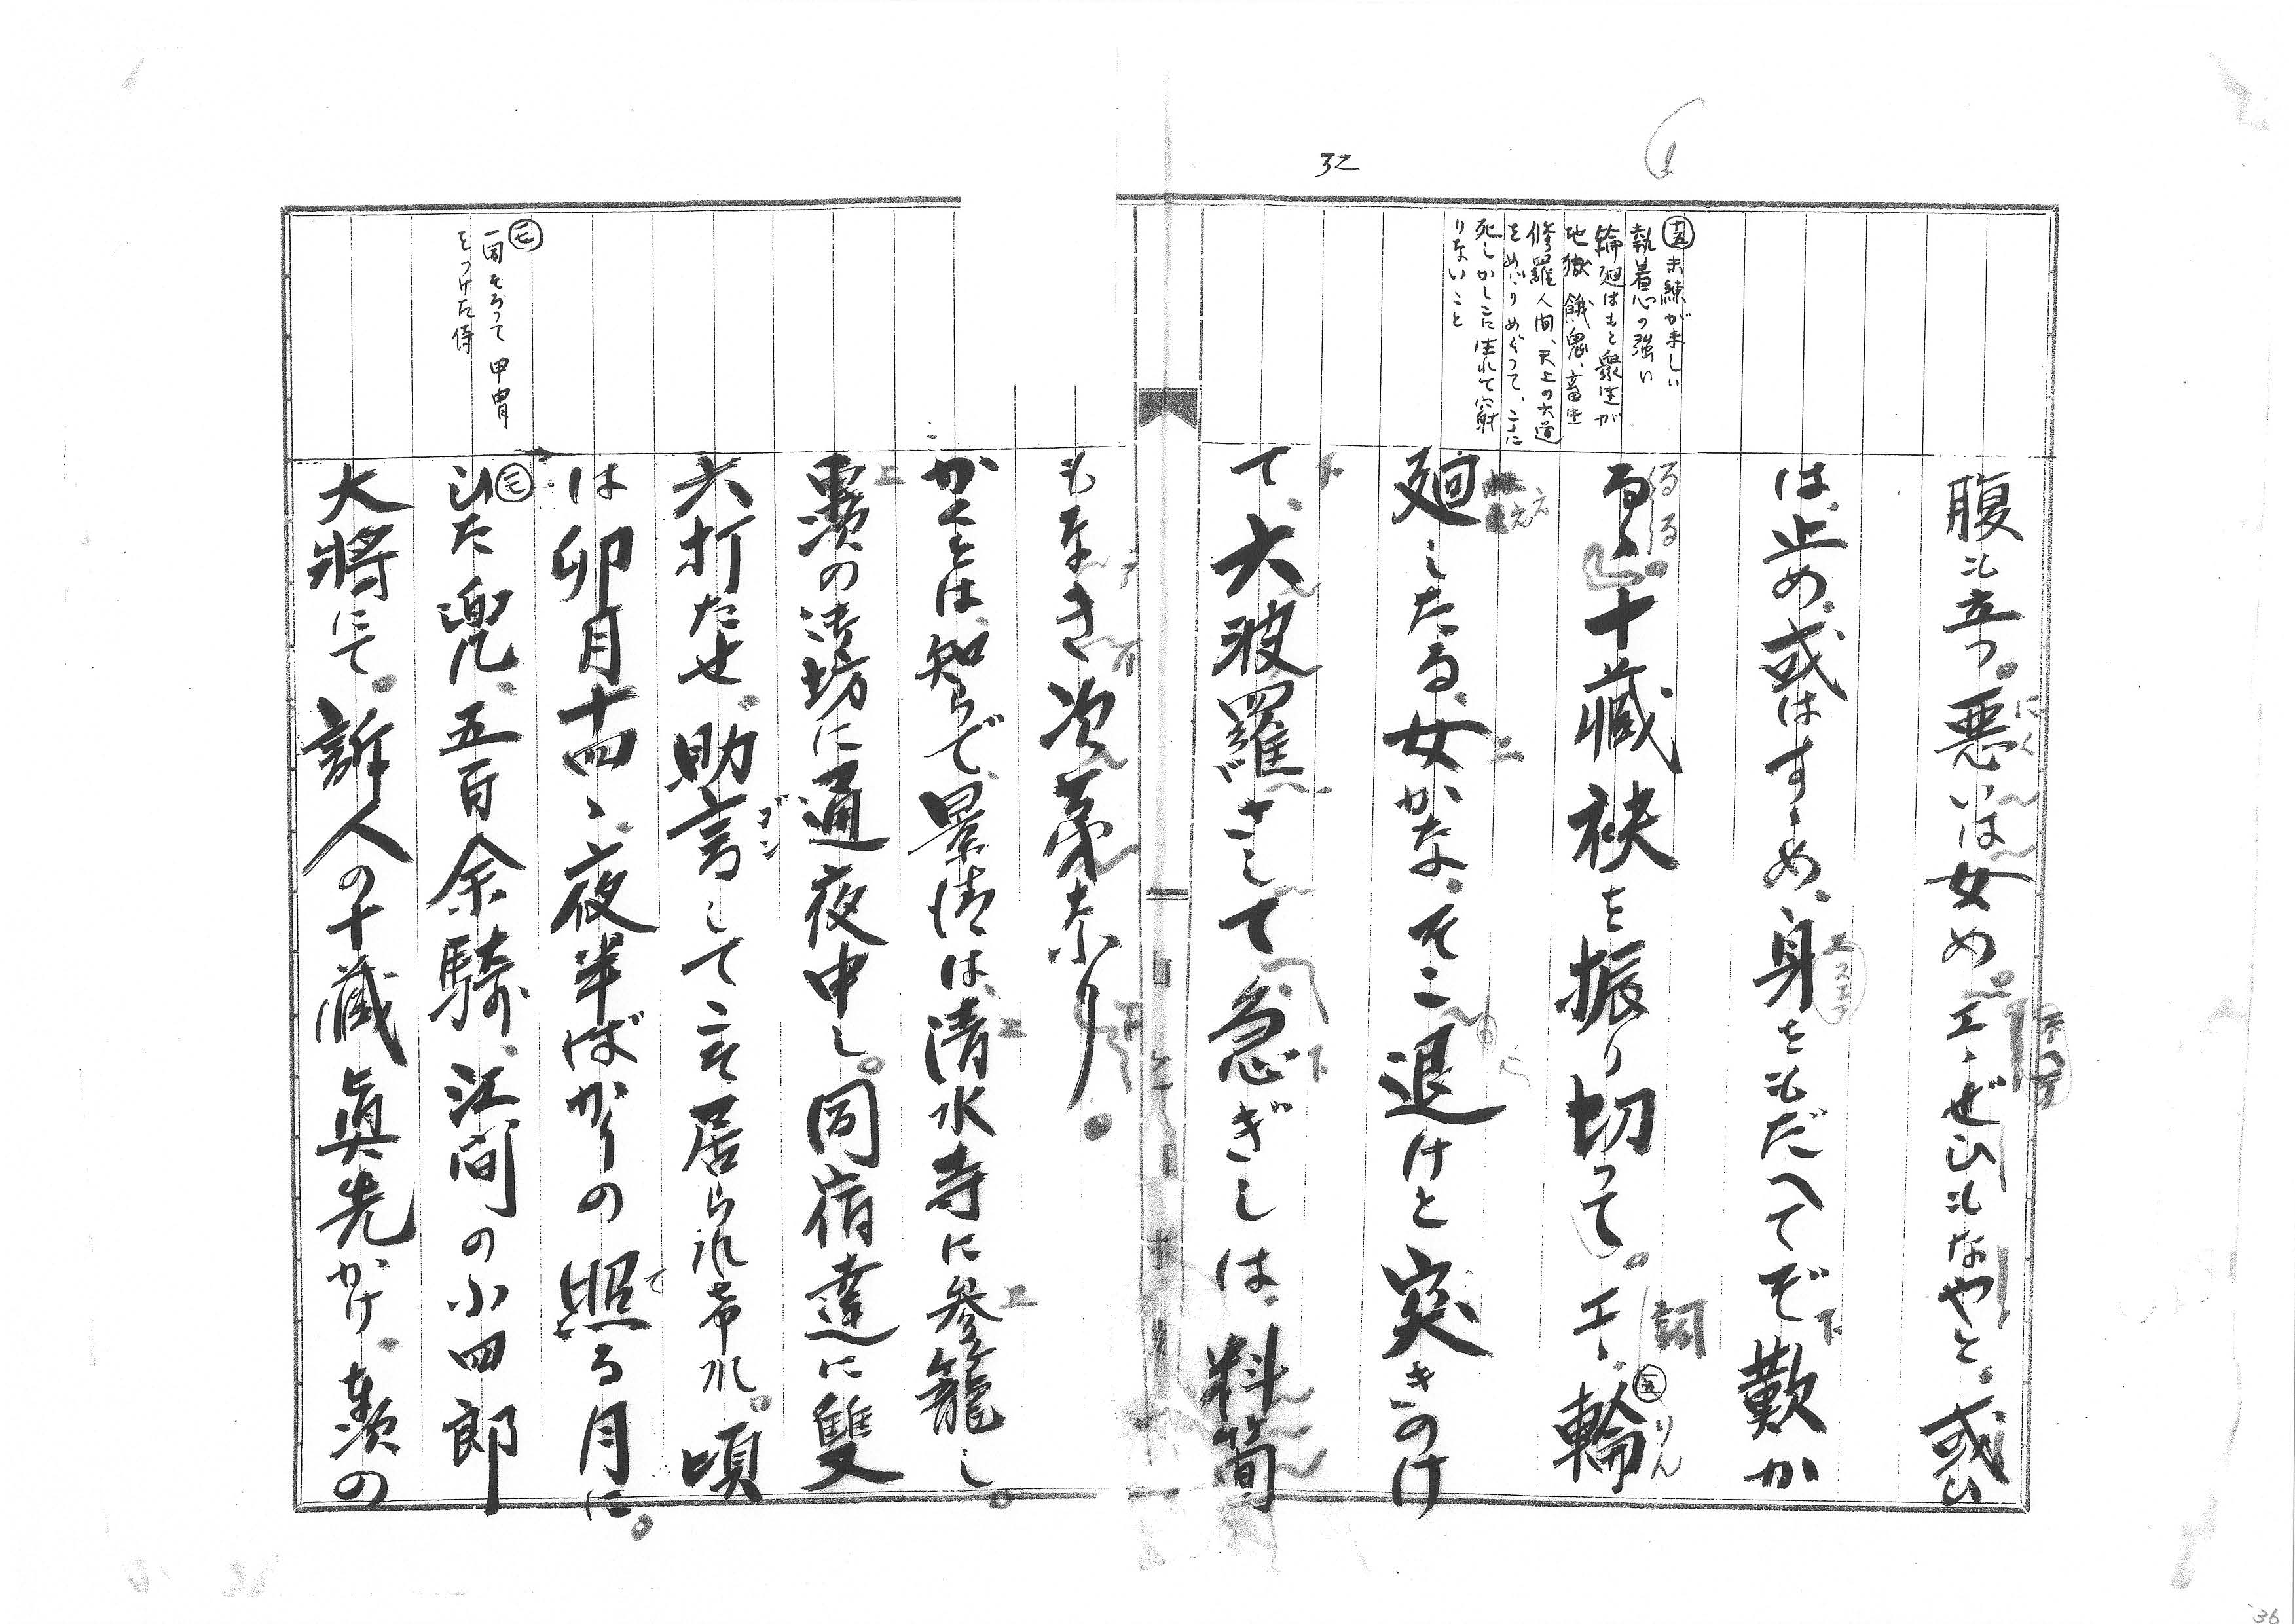 32
十五 未練がましい
執着心の強い
輪廻はもと衆生が
地獄、餓鬼、畜生
修羅、人間、天上の六道
をめぐりめぐって、ここに
死しかしこに生れて窮
りないこと
腹も立つ。悪いは女め。エヽぜひもなやと。或ひ
は、止め、或はすゝめ、身をもだへてぞ歎か
るゝ、十藏袂を振り切って。エヽ、輪
廻したる、女かな、そこ退けと突きのけ
て、六波羅さして急ぎしは、料簡
もなき次第なり
一同そろって甲冑
をつけた侍
かくとは、知らで、景清は、清水寺に參籠し。
轟の御坊に通夜申し。同宿達に雙
六打たせ、助言してこそ居られけれ。頃
は卯月十四、夜半ばかりの照る月に。
ひた兜、五百余騎、江間の小四郎
大將にて。訴人の十藏真先かけ、轟の
36